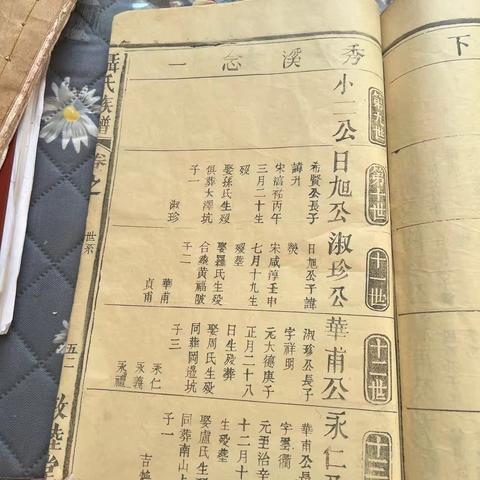 下
秀溪忿一
第九世
小二公
第十世
日旭公
希賢公長子
諱升
宋淳祐丙午
三月二十生
歿
娶孫氏生歿
俱葬大澤坑
子一
淑珍
十一世
淑珍公
日旭公子諱
宋咸淳壬申
七月十九生
歿葬
娶羅氏生歿
合葬黃福陂
子二
華甫
貞甫
十二世
華甫公
淑珍公長子
字祥明
元大德庚子
正月二十八
日生歿葬
娶周氏生歿
同葬岡邉坑
子三
永仁
永義
永禮
十三
永仁公
華甫公長
字墨衢
元至治辛
十二月十
生歿葬
娶盧氏生
同葬南山
子一
氏族譜
卷之
世系
五一
敦睦堂